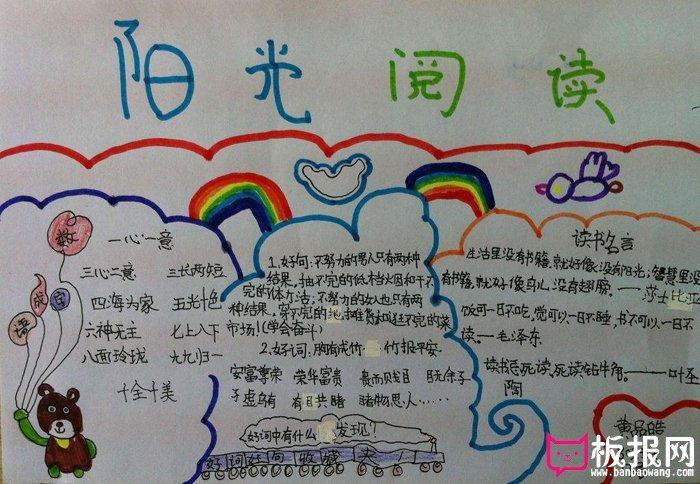 阳光阅读
数
字
成
语
一心一意
三心二意 三长两短
四海为家 五光十色
六神无主 七上八下
八面玲珑 九九归一
十全十美
1.好句:不努力的男人只有两种
结果,抽不完的低档烟和干不
完的体力活;不努力的女人也只有两
种结果,穿不完的地摊货和逛不完的菜
市场!(学会奋斗)
2.好词:胸有成竹 竹报平安
安富尊荣 荣华富贵 贵而贱目 目无余子
子虚乌有 有目共睹 睹物思人……
好词中有什么 发现?
好词好句收藏夹
读书名言
生活里没有书籍,就好像没有阳光;智慧里没
有书籍,就好像鸟儿没有翅膀。——莎士比亚
饭可一日不吃,觉可以一日不睡,书不可以一日不
读。——毛泽东
读书忌死读,死读钻牛角。——叶圣
陶
黄品皓
板报网
www.banbaowang.com